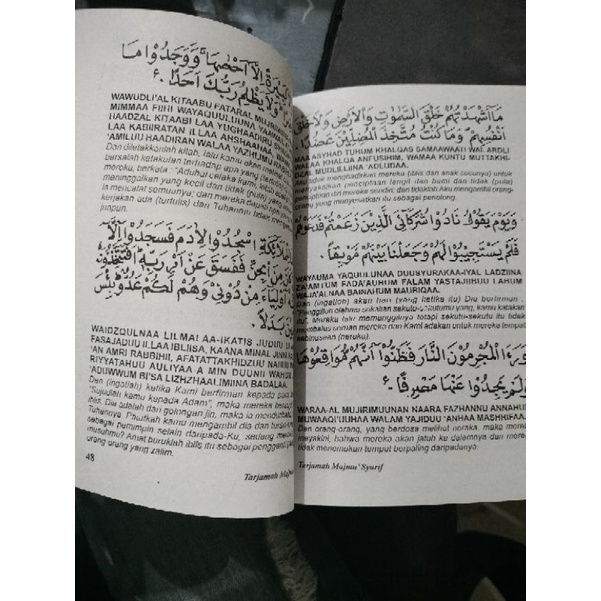 كَبِيْرَةً اِلَّآ اَحْصٰىهَا وَوَجَدُوْا مَا
وَلَا يَظْلِمُ رَبُّكَ اَحَدًا
WAWUDLI'AL KITAABU FATARAL MUJRI
MIMMAA FIIHI WAYAQUULUUNA YAAWAI
HAADZAL KITAABI LAA YUGHAADIRU
LAA KABIIRATAN ILLAA AHSHAAHAA
'AMILUU HAADIRAN WALAA YAZHLIMU
Dan diletakkanlah kitab, lalu kamu akan
bersalah ketakutan terhadap apa yang
mereka, berkata: "Aduhai celaka kami, kitab
meninggalkan yang kecil dan tidak (pula)
ia mencatat semuanya; dan mereka dapati
kerjakan ada (tertulis) dan Tuhanmu tidak
juapun.
اسْجُدُوْا لِاٰدَمَ فَسَجَدُوْٓا
مِنَ الْجِنِّ فَفَسَقَ عَنْ اَمْرِ رَبِّهٖ اَفَتَتَّخِذُوْنَهٗ
اَوْلِيَآءَ مِنْ دُوْنِيْ وَهُمْ لَكُمْ عَدُوٌّ بِئْسَ
بَدَلًا
WAIDZQULNAA LILMALAA-IKATIS JUDUU
FASAJADUU ILLAA IBLIISA, KAANA MINAL JINNI
'AN AMRI RABBIHII, AFATATTAKHIDZUU
RIYYATAHUU AULIYAA A MIN DUUNII WAHUM
'ADUWWUM BI'SA LIZHZHAALIMIINA BADALAA.
Dan (ingatlah) ketika Kami berfirman kepada para
"Sujudlah kamu kepada Adam", maka mereka
lis. Dia adalah dari golongan jin, maka ia mendurhakai
Tuhannya. Patutkah kamu mengambil dia dan
sebagai pemimpin selain daripada-Ku, sedang mereka
musuhmu? Amat buruklah iblis itu sebagai pengganti
orang orang yang zalim.
48
Tarjamah Majmu'
مَآ اَشْهَدْتُّهُمْ خَلْقَ السَّمٰوٰتِ وَالْاَرْضِ وَلَا خَلْقَ
اَنْفُسِهِمْ وَمَا كُنْتُ مُتَّخِذَ الْمُضِلِّيْنَ عَضُدًا
MAA ASYHAD TUHUM KHALQAS SAMAAWAATI WAL ARDLI
WALAA KHALQA ANFUSIHIM, WAMAA KUNTU MUTTAKHI-
DZAL MUDLILLIINA 'ADLUDAA.
Aku tidak menghadirkan mereka (iblis dan anak cucunya) untuk
menyaksikan penciptaan langit dan bumi dan tidak (pula)
penciptaan diri mereka sendiri; dan tidaklah Aku mengambil orang-orang
yang menyesatkan itu sebagai penolong.
وَيَوْمَ يَقُوْلُ نَادُوْا شُرَكَآءِيَ الَّذِيْنَ زَعَمْتُمْ فَدَعَوْهُمْ
فَلَمْ يَسْتَجِيْبُوْا لَهُمْ وَجَعَلْنَا بَيْنَهُمْ مَّوْبِقًا
WAYAUMA YAQUULUNAA DUUSYURAKAA-IYAL LADZIINA
ZA'AMTUM FADA'AUHUM FALAM YASTAJIIBUU LAHUM
WAJA'ALNAA BAINAHUM MAUBIQAA.
Dan (ingatlah) akan hari (yang ketika itu) Dia berfirman :
"Panggillah olehmu sekalian sekutu-sekutumu yang kamu katakan
itu", Mereka lalu memanggilnya tetapi sekutu-sekutu itu tidak
membalas seruan mereka dan Kami adakan untuk mereka tempat
kebinasaan (neraka).
وَرَاَ الْمُجْرِمُوْنَ النَّارَ فَظَنُّوْٓا اَنَّهُمْ مُّوَاقِعُوْهَا
وَلَمْ يَجِدُوْا عَنْهَا مَصْرِفًا
WARAA-AL MUJRIMUUNAN NAARA FAZHANNU ANNAHUM
MUWAAQI'UUHAA WALAM YAJIDUU 'ANHAA MASHRIFAA.
Dan orang-orang, yang berdosa melihat neraka, maka mereka
meyakini, bahwa mereka akan jatuh ke dalamnya dan mereka
tidak menemukan tempat berpaling daripadanya.
Tarjamah Majmu' Syarif